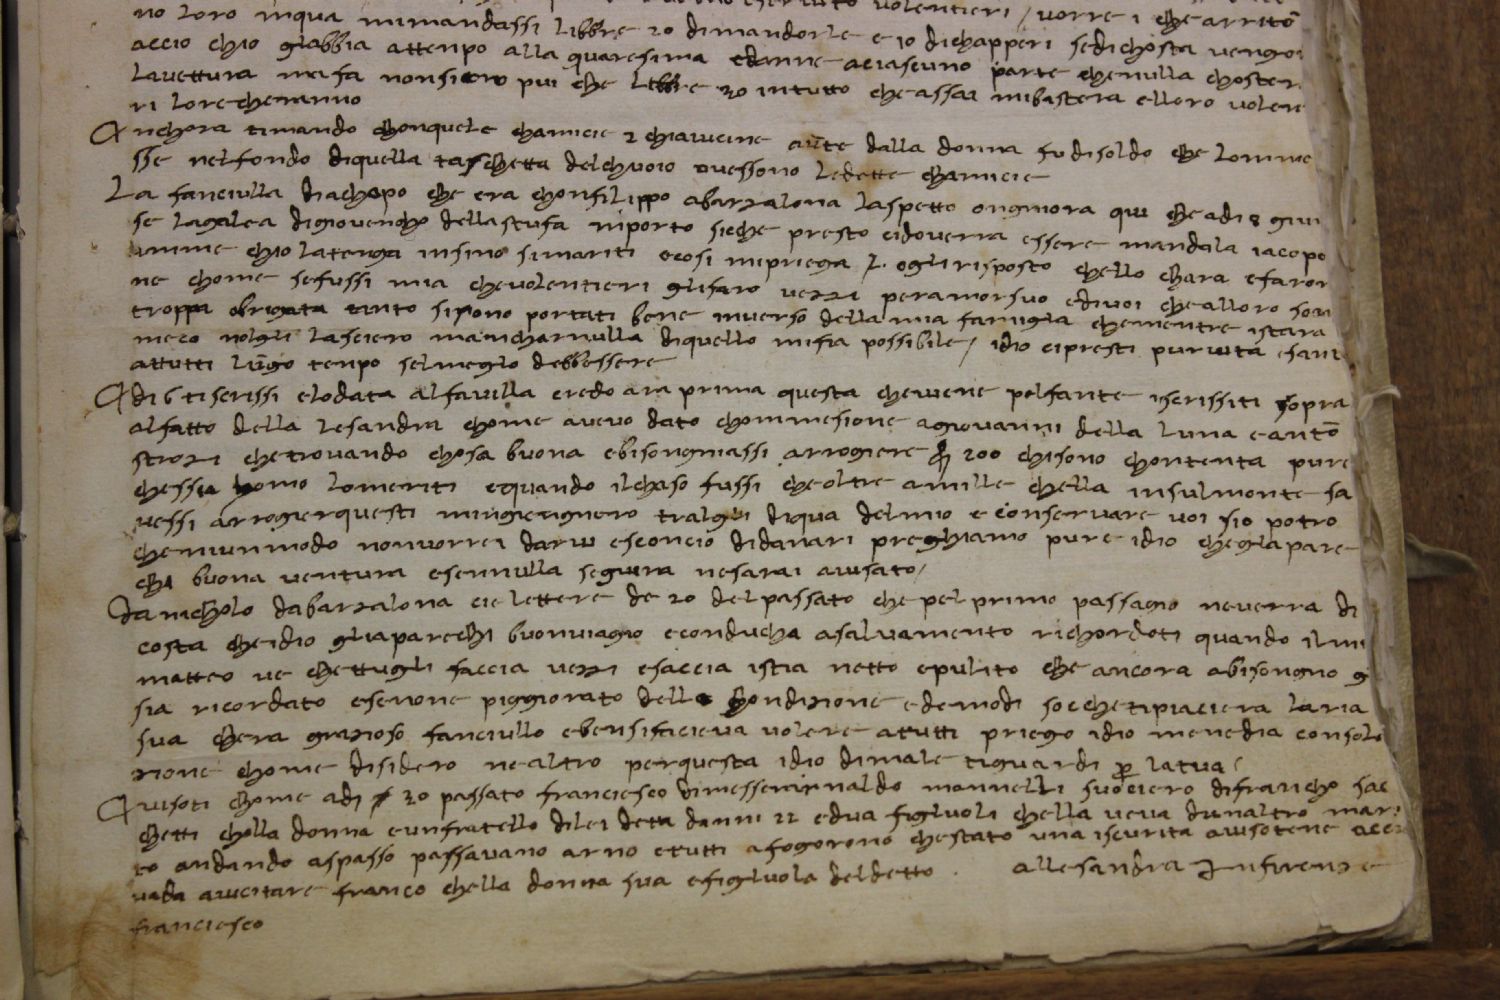 no loro inqua mimandassi libbre 20 dimandorle e 10 dichapperi sedichosta vengo
accio chio glabbia attenpo alla quaresima edanne aciascuno parte chenulla choster
lavettura nefa nonsieno piu che libbre 20 intutto cheassai mibastera elloro volere
ri lorecheranno
Anchora timando chonquele chamicie 2 chiavicine aute dalla donna fu disoldo che lomme
sse nelfondo diquella taschetta delchuoio overssono ledette chamicie
La fanciulla diachopo che era chonfilippo abarzalona laspetto ongniora qui che adi 8 giun
se lagalea digiovencho dellastufa niporto sicche presto cidoverra essere mandala iacopo
amme chio latenga insino simariti ecosi mipriega e ogli risposto chello chara efaron
ne chome sefussi mia chevolentieri glifaro vezzi peramorsuo edivoi chealloro son
troppa obrigata tanto sisono portati bene inverso della mia famiglia chementre istara
meco nolgli lasciero mancharnulla diquello mifia possibile / idio cipresti purvita esani
attutti lungo tenpo selmeglo debbessere
Adi 6 tiscrissi elodata alfavilla credo ara prima questa chevene pelfante iscrissiti sopra
alfatto della lesandra chome avevo dato chommesione agiovanni della luna eanto
strozzi chetrovando chosa buona ebisongniassi arrogiere 200 chisono chontenta pure
chessia homo lomeriti equando ilchaso fussi cheoltre amille chella insulmonte sa
vessi arrogierquesti mingiengnero tralgli diqua delmio e conservare voi sio potro
cheniunmodo nonvorrei darvi esconcio didanari preghiamo pure idio chegla pare
chi buona ventura esennulla seguira nesarai avisato /
Da nicholo dabarzalona cie lettere de 20 delpassato che pelprimo passagio neverra di
costa cheidio gliaparechi buonviagio econducha asalvamento richordoti quando ilmi
matteo ve chettugli faccia vezzi efaccia istia netto epulito che ancora abisongno g
sia ricordato esenone piggiorato delle chondizione edemodi soe chetipiaciera laria
sua chera grazioso fanciullo ebensifacieva volere atutti priego idio menedia consola
zione chome disidero nealtro perquesta idio dimale tiguardi per latua /
Avisoti chome adi 20 passato franciesco dimesserarnaldo mannelli suociero difrancho sac
chetti cholla donna eunfratello dilei detta danni 22 edua figliuoli chella veva dunaltro mari
to andando aspasso passavano arno etutti afogorono chestato una iscurita avisotene accio
vada avicitare franco chella donna sua efigliuola deldetto . allesandra Infirenze
franciesco